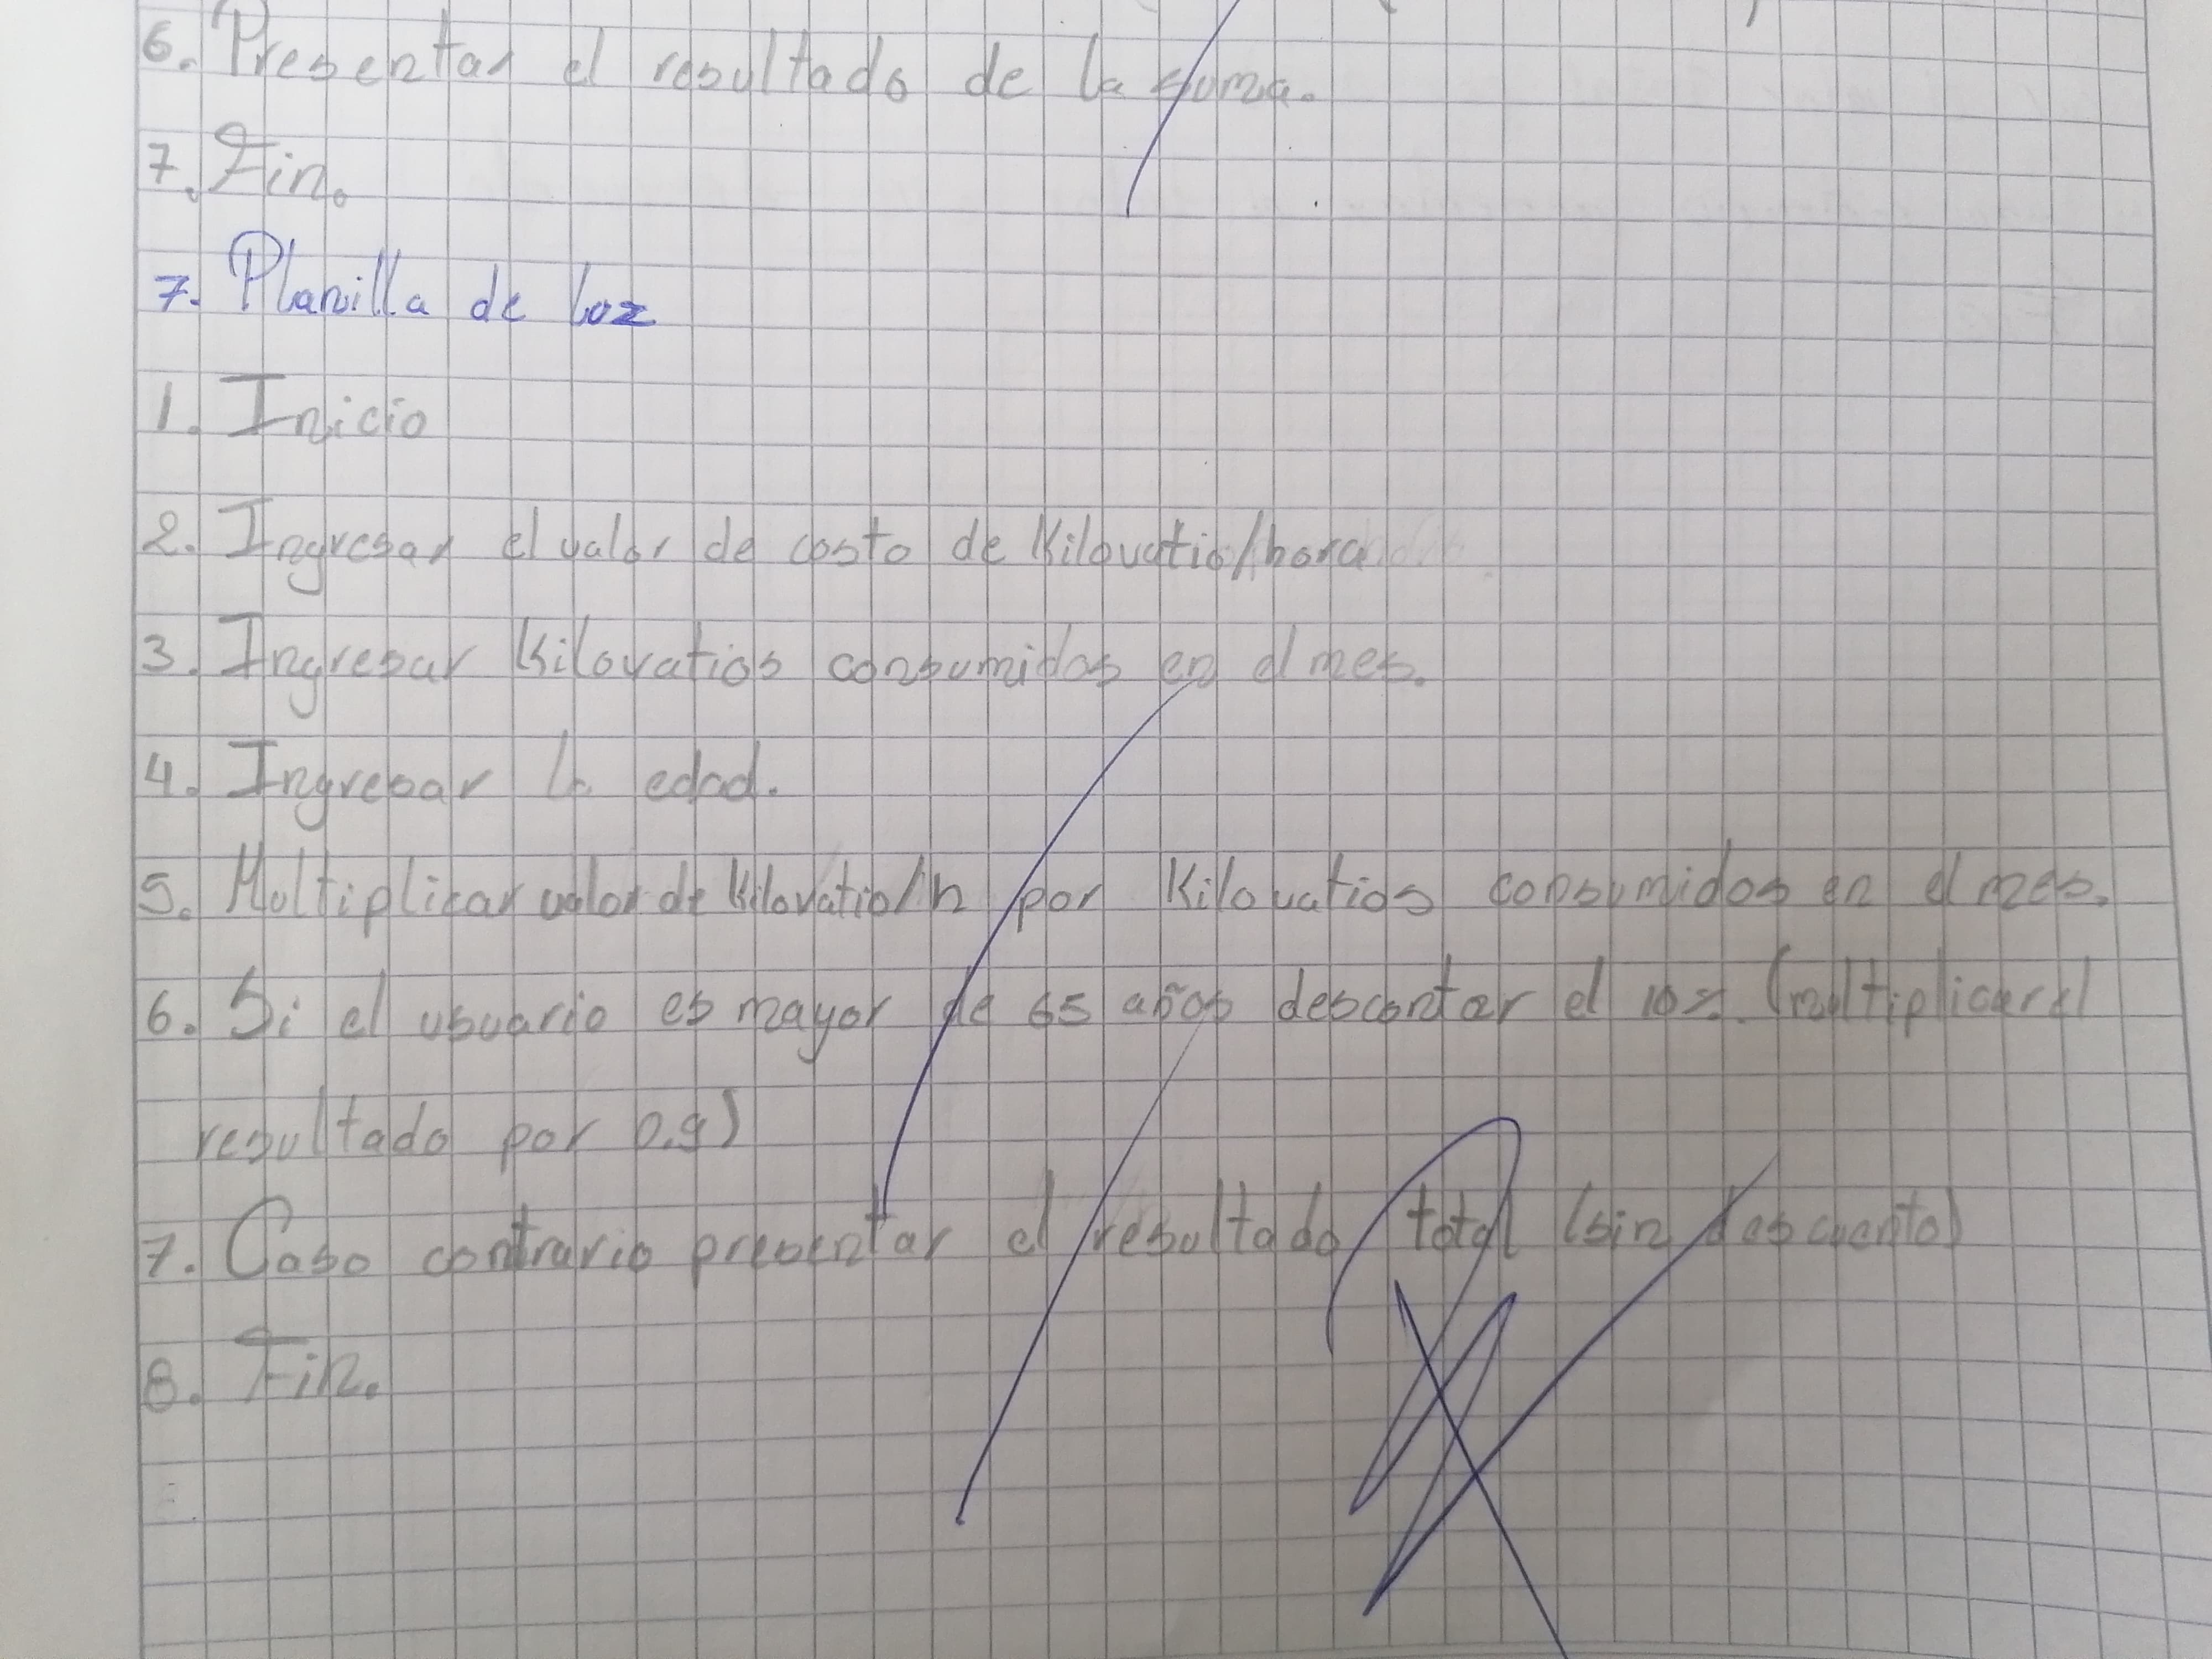 6. Presentar el resultado de la suma.
7. Fin.
7. Planilla de luz
1. Inicio
2. Ingresar el valor de costo de Kilovatio/hora
3. Ingresar Kilovatios consumidos en el mes.
4. Ingresar la edad.
5. Multiplicar valor de Kilovatio/h por Kilovatios consumidos en el mes.
6. Si el usuario es mayor de 65 años descontar el 10%. (multiplicar el
resultado por 0.9)
7. Caso contrario presentar el resultado total (sin descuento)
8. Fin.